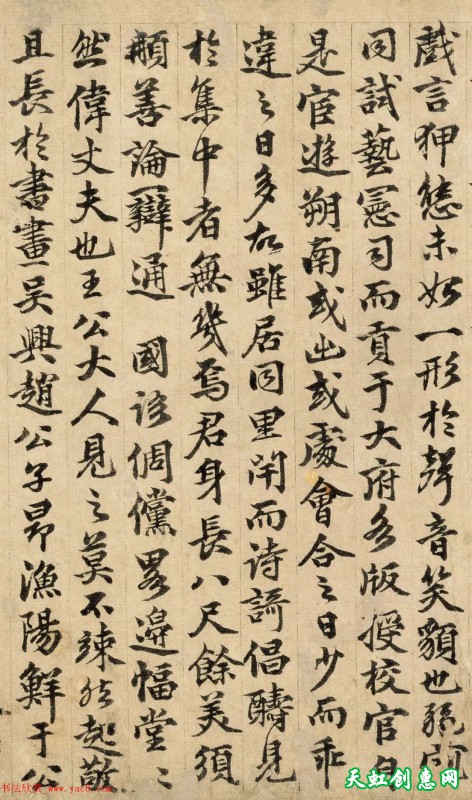 戲言狎態未始一形於聲音笑貌也
同試藝憲司而貢于大府各版授校官自
是宦遊朔南或出或處會合之日少而乖
違之日多故雖居同里閈而詩謌倡醻見
於集中者無幾焉君身長八尺餘美須
髯善論辯通 國語倜儻畧邊幅堂〻
然偉丈夫也王公大人見之莫不竦然起敬
且長於書畫吳興趙公子昂漁陽鮮于公
书法欣赏
www.yac8.com
天虹创惠网